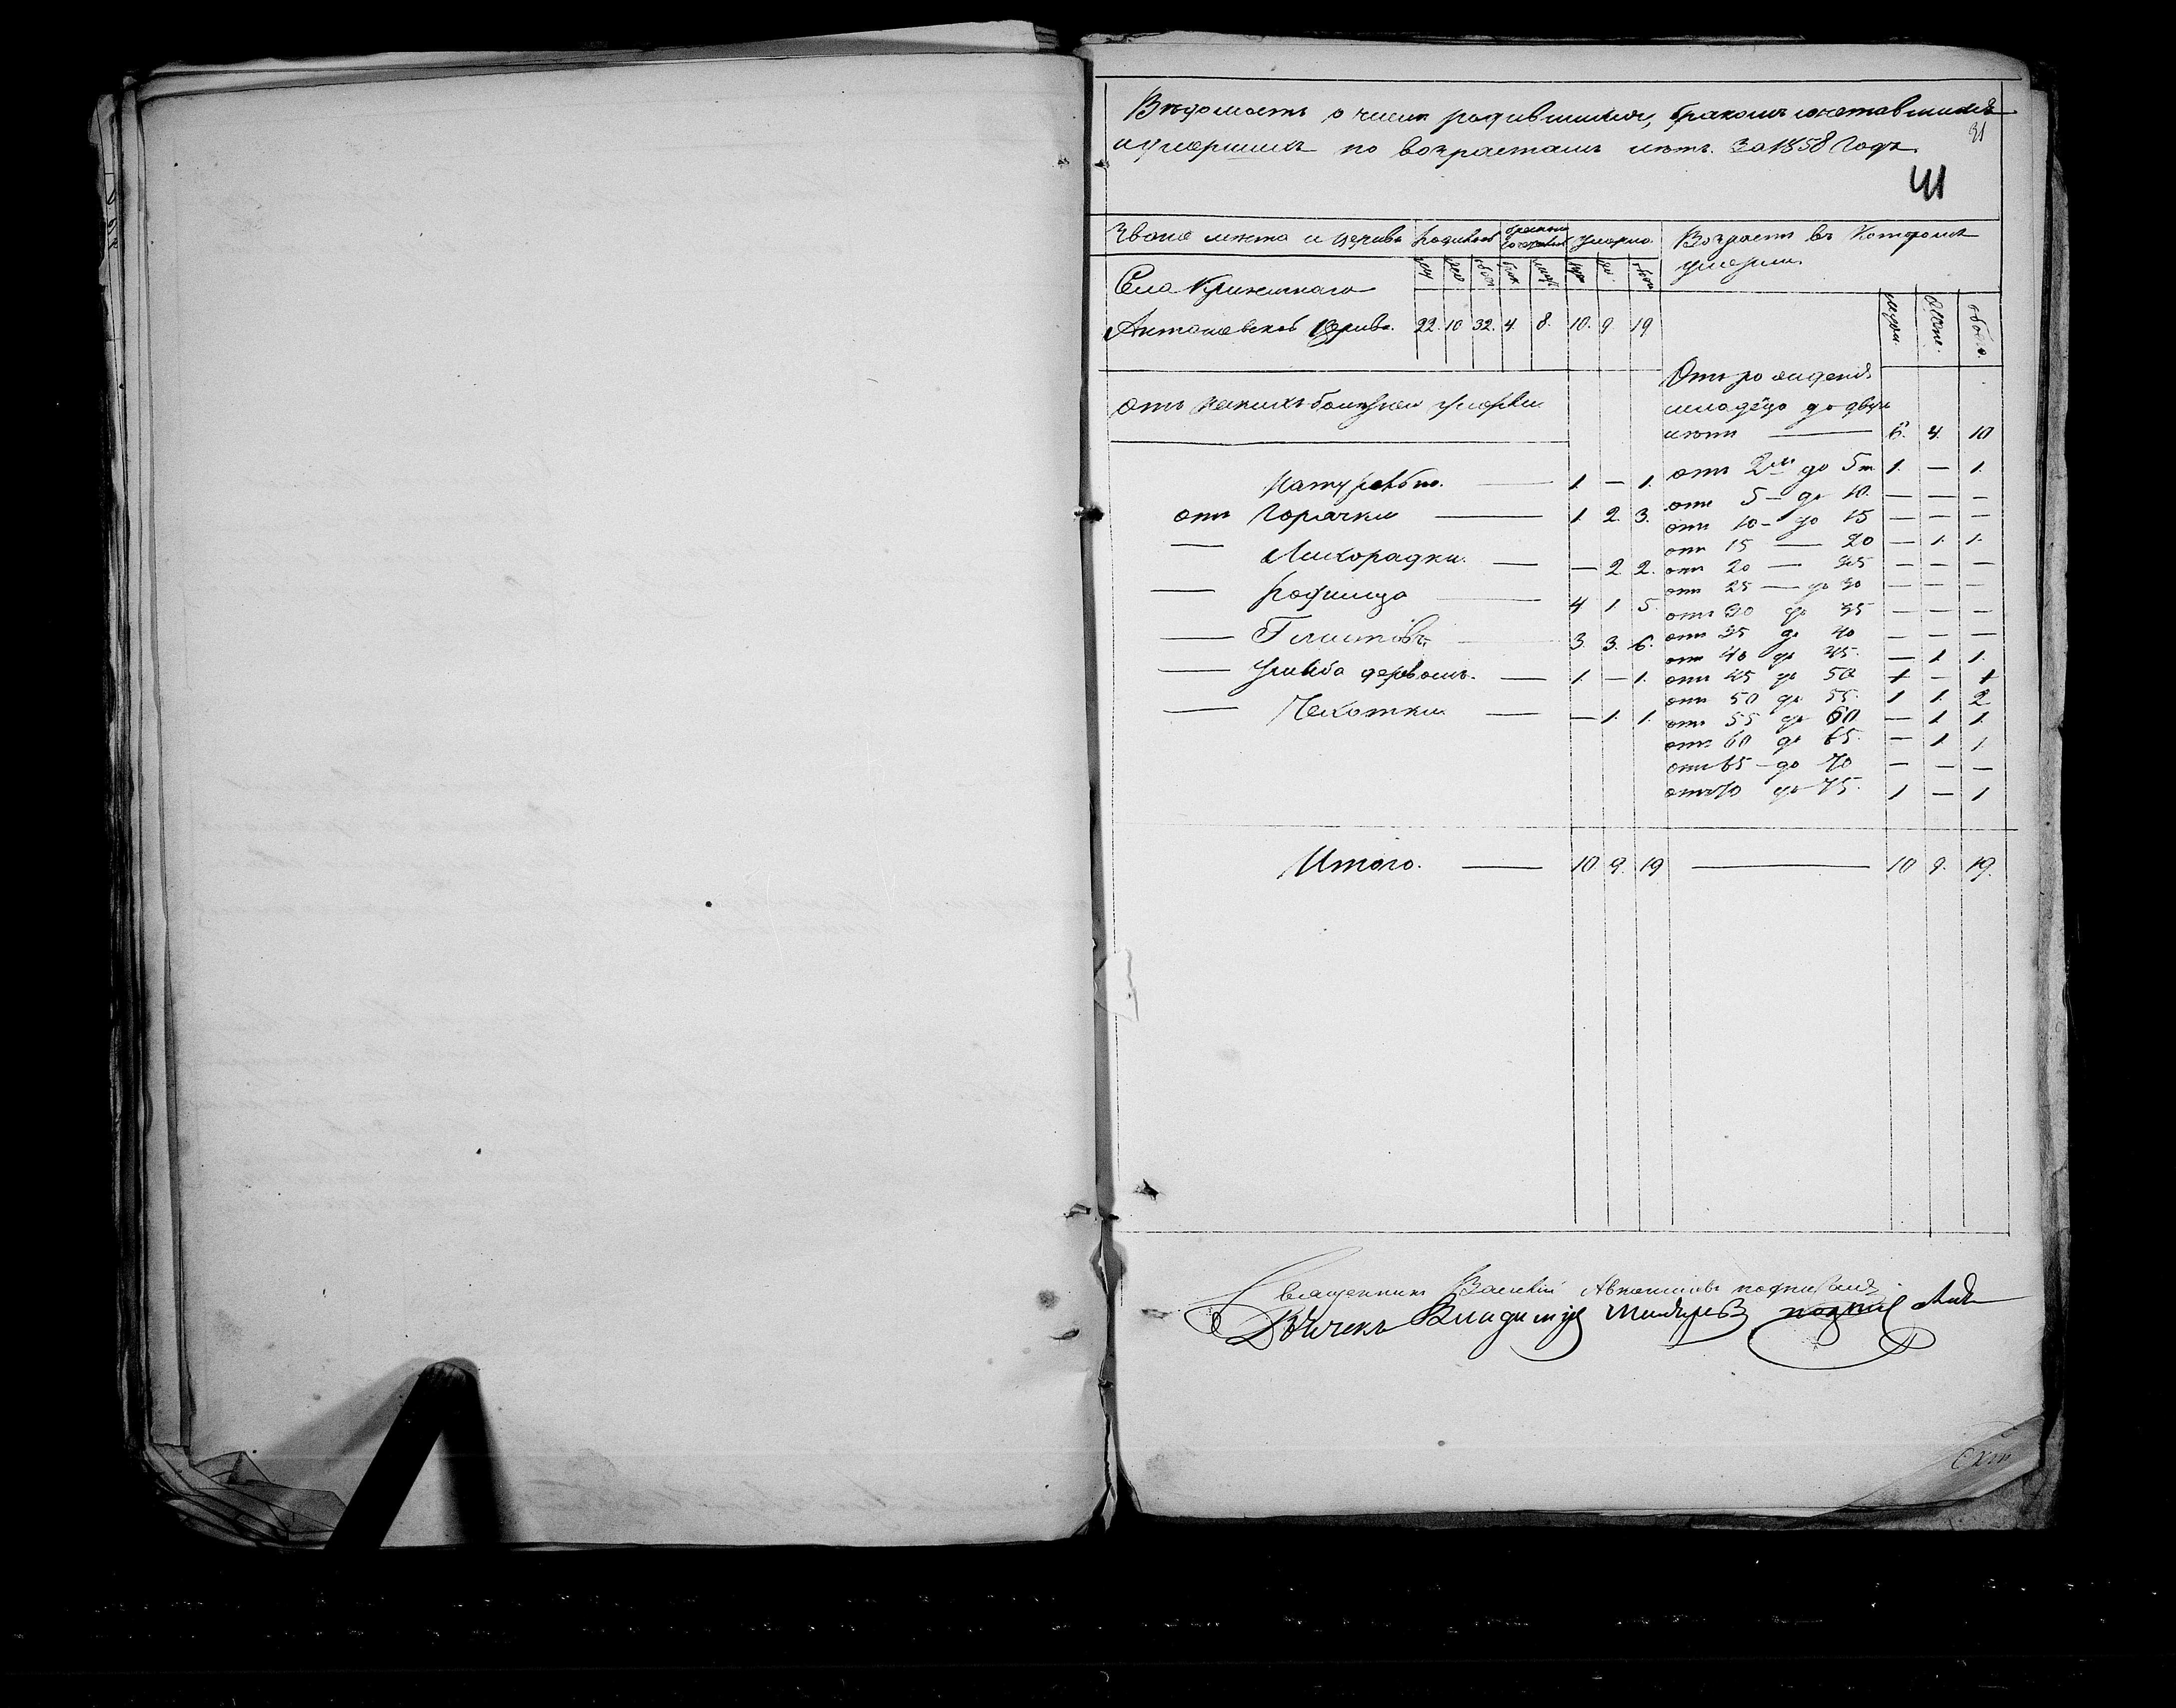 Вѣдомость о числѣ родившихся, бракомъ сочетавшихся
31
и умершихъ по возрастамъ лѣтъ. За 1858 Годъ.
41
Званіе мѣста и церкви родилось бракомъ сочеталось умерло Возрастъ въ Которомъ
умерли.
Села
Церкви. 22. 10 32. 4. 8. 10. 9. 19
Отъ рожденія
отъ какихъ болѣзней умерли младѣнцо до двухъ
лѣтъ — 6. 4. 10
натурально. — 1. — 1. отъ 2хъ до 5ти 1. — 1.
отъ 5 — до 10. — — —
отъ Горячки — 1. 2. 3. отъ 10 — до 15 — — —
отъ 15 — 20 — 1. 1.
— Лихорадки. — — 2 2. отъ 20 — 25 — — —
отъ 25 — до 30 — — —
— Родимца — 4 1. 5. отъ 30 до 35 — — —
— Глистовъ — 3. 3. 6. отъ 35 до 40 — — —
отъ 40 до 45. — 1. 1.
— деревомъ. — 1. — 1. отъ 45 до 50 1 — 1
отъ 50 до 55. 1 1. 2
— Чехотки — — 1. 1. отъ 55 до 60 — 1. 1.
отъ 60 до 65. — 1. 1.
отъ 65 — до 70 — — —
отъ 70 до 75. 1 — 1
Итого. — 10. 9. 19 — 10 9. 19.
Священникъ Василій подписалъ
Дьячекъ Владимир